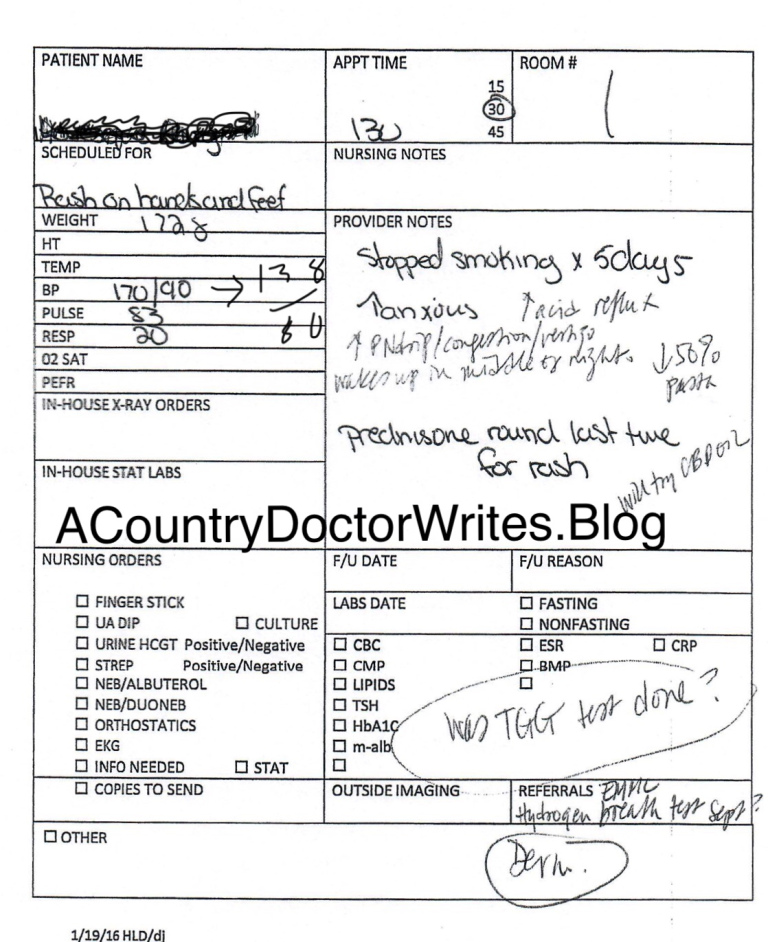 PATIENT NAME
APPT TIME
ROOM #
15
30
45
130
1
SCHEDULED FOR
Rash on hands and feet
NURSING NOTES
WEIGHT 172.8
HT
TEMP
BP 170/90 → 138
80
PULSE 83
RESP 20
02 SAT
PEFR
IN-HOUSE X-RAY ORDERS
IN-HOUSE STAT LABS
PROVIDER NOTES
Stopped smoking x 5days
↑anxious ↑acid reflux
↑ PNdrip/congestion/vertigo
wakes up in middle of night.
↓50%
pasta
Prednisone round last time
for rash
will try CBD oil
ACountryDoctorWrites.Blog
NURSING ORDERS
☐ FINGER STICK
☐ UA DIP ☐ CULTURE
☐ URINE HCGT Positive/Negative
☐ STREP Positive/Negative
☐ NEB/ALBUTEROL
☐ NEB/DUONEB
☐ ORTHOSTATICS
☐ EKG
☐ INFO NEEDED ☐ STAT
☐ COPIES TO SEND
F/U DATE
F/U REASON
LABS DATE
☐ FASTING
☐ NONFASTING
☐ CBC
☐ CMP
☐ LIPIDS
☐ TSH
☐ HbA1C
☐ m-alb
☐
☐ ESR ☐ CRP
☐ BMP
☐
Was TGG test done?
OUTSIDE IMAGING
REFERRALS EMMC
Hydrogen breath test Sept?
☐ OTHER
Derm.
1/19/16 HLD/dj